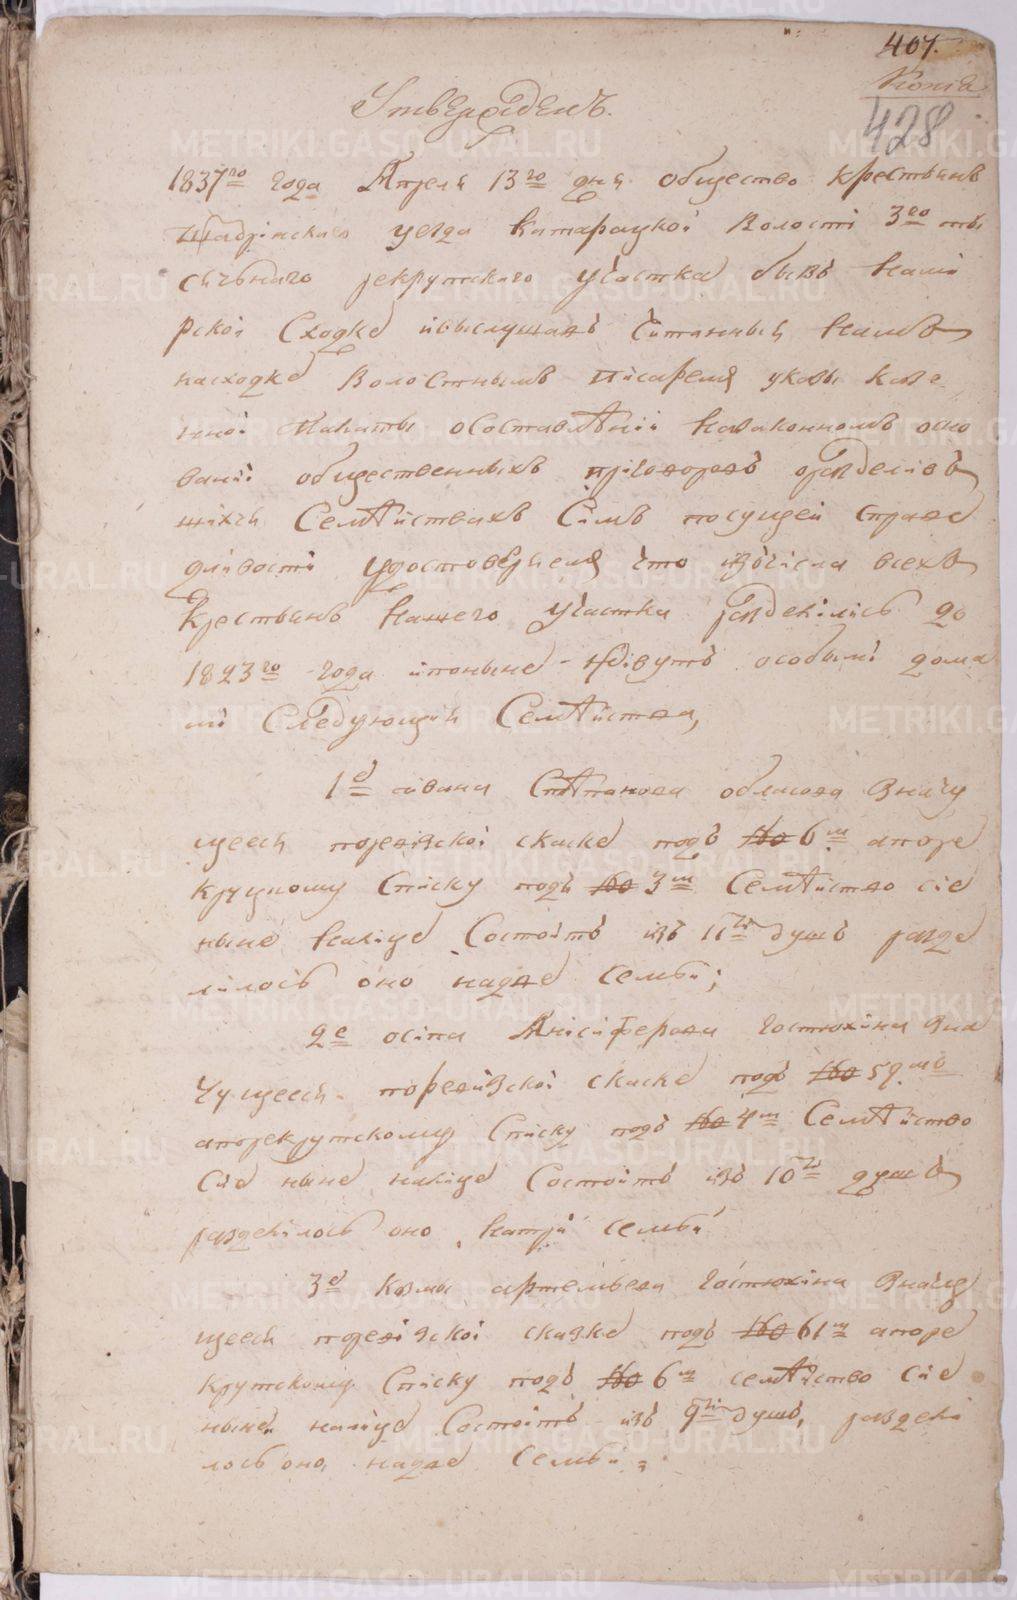 407.
Копiя
428
Утвержденъ.
1837го года Апреля 13го дня общество крестьянъ
Шадринскаго уезда Катарацкой Волости 3го ты
сячьнаго рекрутскаго участка бывъ намi
рской Сходке ивыслушавъ Читанный намъ
насходке Волостнымъ писаремъ указъ казе
нной Палаты осоставленiи назаконномъ осно
ванiи общественныхъ приговоровъ оразделiв
шихся Семѣйствахъ Симъ посущей справе
дливости удостоверяемъ что изъчисла всехъ
Крестьянъ нашего участка разделились до
1823го года ипоныне живутъ особыми дома
ми Следующия Семѣйства,
1е ивана Стѣпанова обласова Значу
щееся поревизской скаске подъ №6м апоре
круцкому Списку подъ №3м Семѣйство сiе
ныне налице Состоитъ изъ 11ти душъ разде
лилось оно надве семьи;
2е осипа Анисифорова Гостюхина Зна
чущееся поревизской скаске подъ №59мъ
апорекрутскому Списку подъ №4м Семѣйство
Сие ныне налице Состоитъ изъ 10ти душъ
разделилось оно натри семьи
3е козмы артемьева Гостюхина Значу
щееся поревизской сказке подъ №61м апоре
крутскому Списку подъ №6м семѣйство Сие
ныне налице Состоитъ изъ 9ти душъ, раздели
лось оно надве Семьи;
METRIKI.GASO-URAL.RU